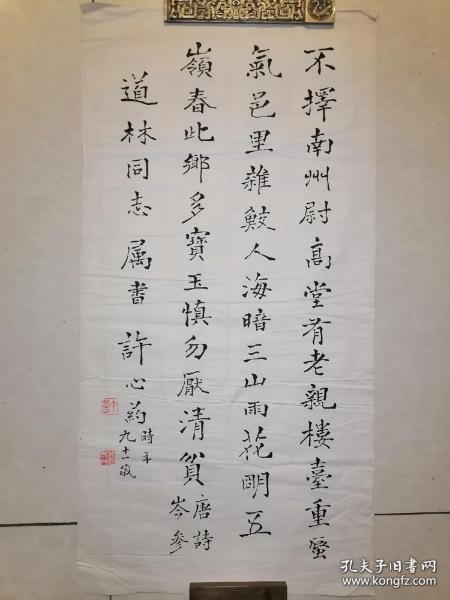 不擇南州尉高堂有老親樓臺重蜃
氣邑里雜鮫人海暗三山雨花明五
嶺春此鄉多寶玉慎勿厭清貧
唐詩
岑參
道林同志属書 許心葯
時年
九十一歲
孔夫子旧书网
www.kongfz.com